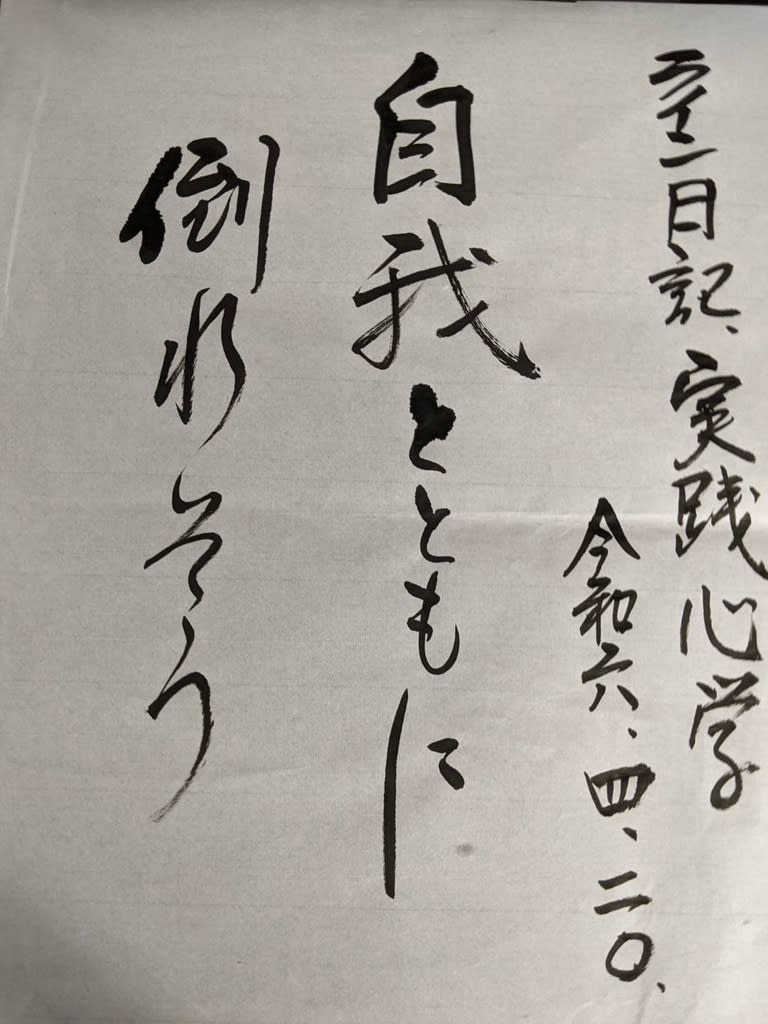 日記、実践心学
令和六、四、二〇、
自我とともに
倒れそう